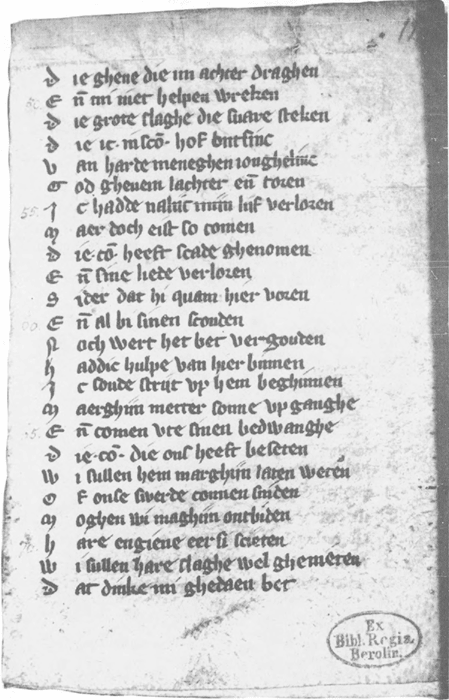 D ie ghene die im achter draghen
E ñ mi niet helpen wreken
D ie grote slaghe die suare steken
D ie ic in scō· hof ontfinc
V an harde meneghen ionghelinc
G od gheuem lachter eñ toren
J c hadde naluc mijn lijf verloren
M aer doch eist so comen
D ie·cō· heeft scade ghenomen
E ñ sine liede verloren
S ider dat hi quam hier voren
E ñ al bi sinen scouden
N och wert het bet vergouden
H addic hulpe van hier binnen
J c soude strijt vp hem beghinnen
M aerghin metter sonne vp ganghe
E ñ comen vte sinen bedwanghe
D ie·cō· die ons heeft beseten
W i sullen hem marghin laten weten
O f onse swerde connen sniden
M oghen wi maghin ontbiden
H are engiene eer si scieten
W i sullen hare slaghe wel ghemeten
D at dinke mi ghedaen bet
55.
Ex
Bibl. Regia
Berolin.